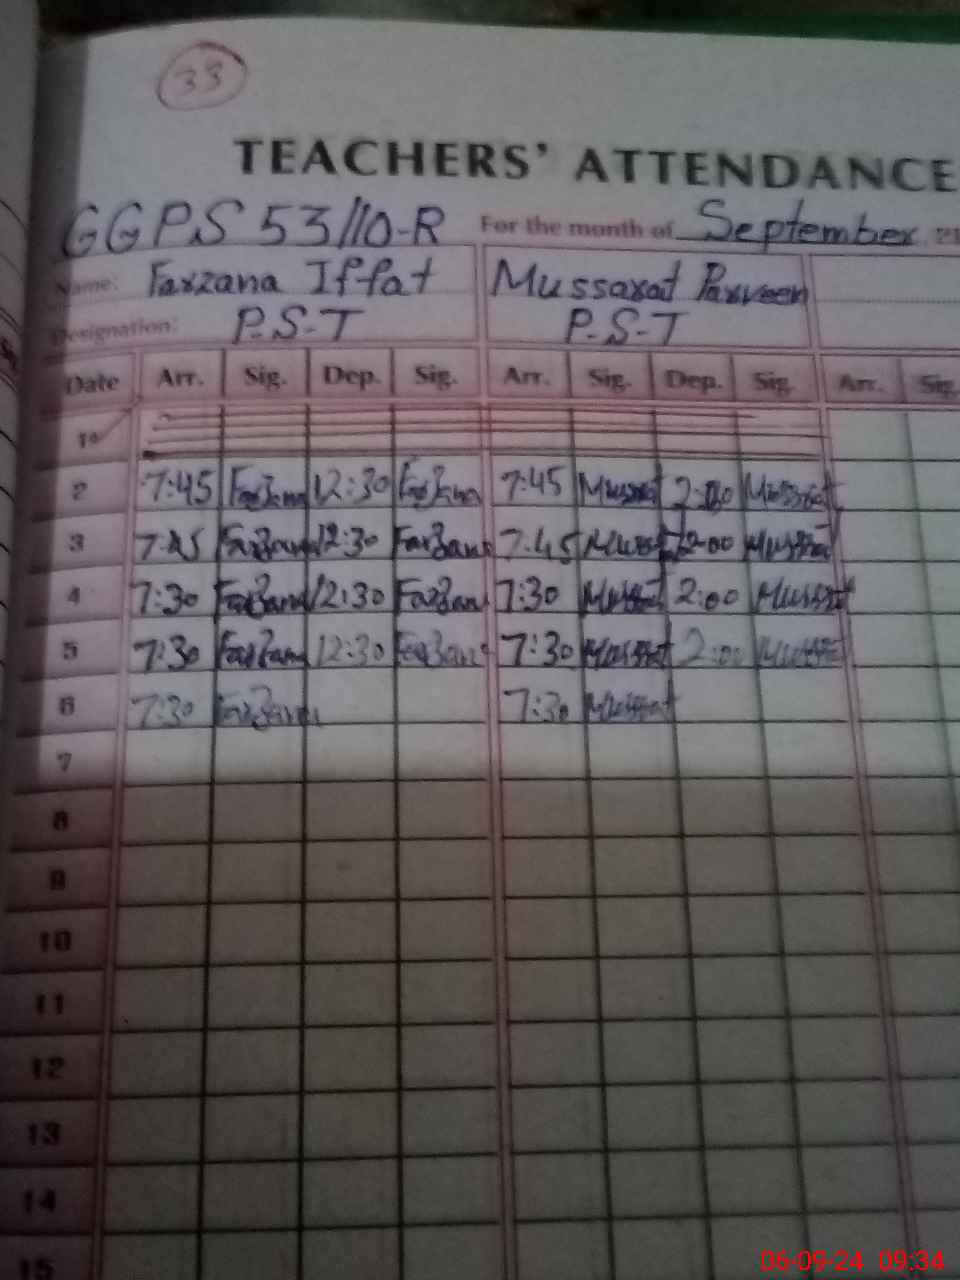 33
TEACHERS' ATTENDANCE
GGPS 53/10-R For the month of September
Name: Farzana Iffat Mussarat Parveen
Designation: P.S-T P.S-T
Date Arr. Sig. Dep. Sig. Arr. Sig. Dep. Sig. Arr. Sig.
1
2 7:45 Farzana 12:30 Farzana 7:45 Mussrat 2:00 Mussrat
3 7:45 Farzana 12:30 Farzana 7:45 Mussrat 2:00 Mussrat
4 7:30 Farzana 12:30 Farzana 7:30 Mussrat 2:00 Mussrat
5 7:30 Farzana 12:30 Farzana 7:30 Mussrat 2:00 Mussrat
6 7:30 Farzana 7:30 Mussrat
7
8
9
10
11
12
13
14
15
06-09-24 09:34